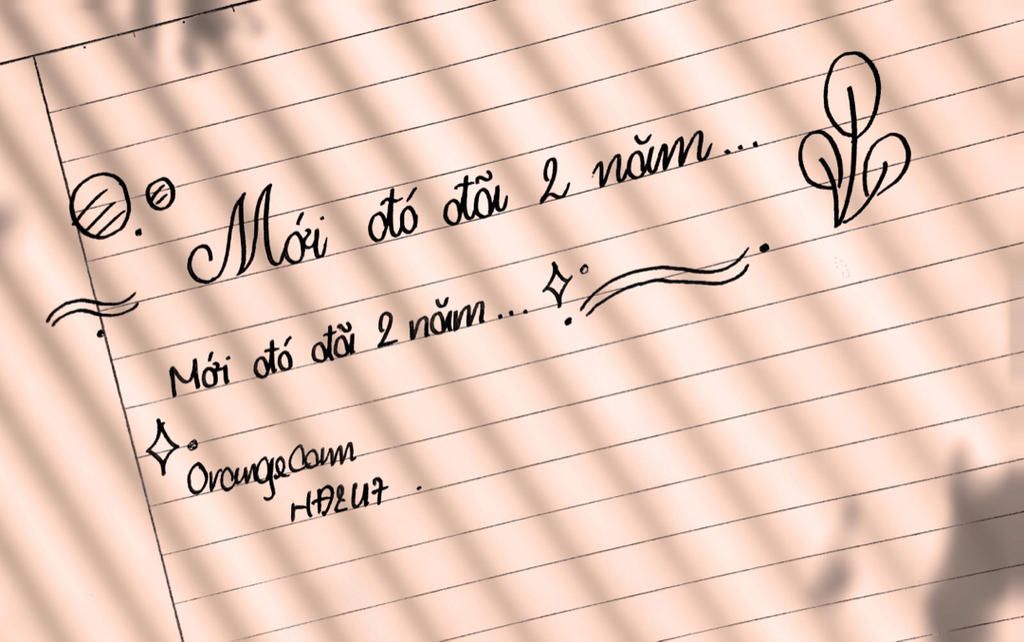 Mới đó đã 2 năm...
Mới đó đã 2 năm...
OrangeCam
HĐ2U7.